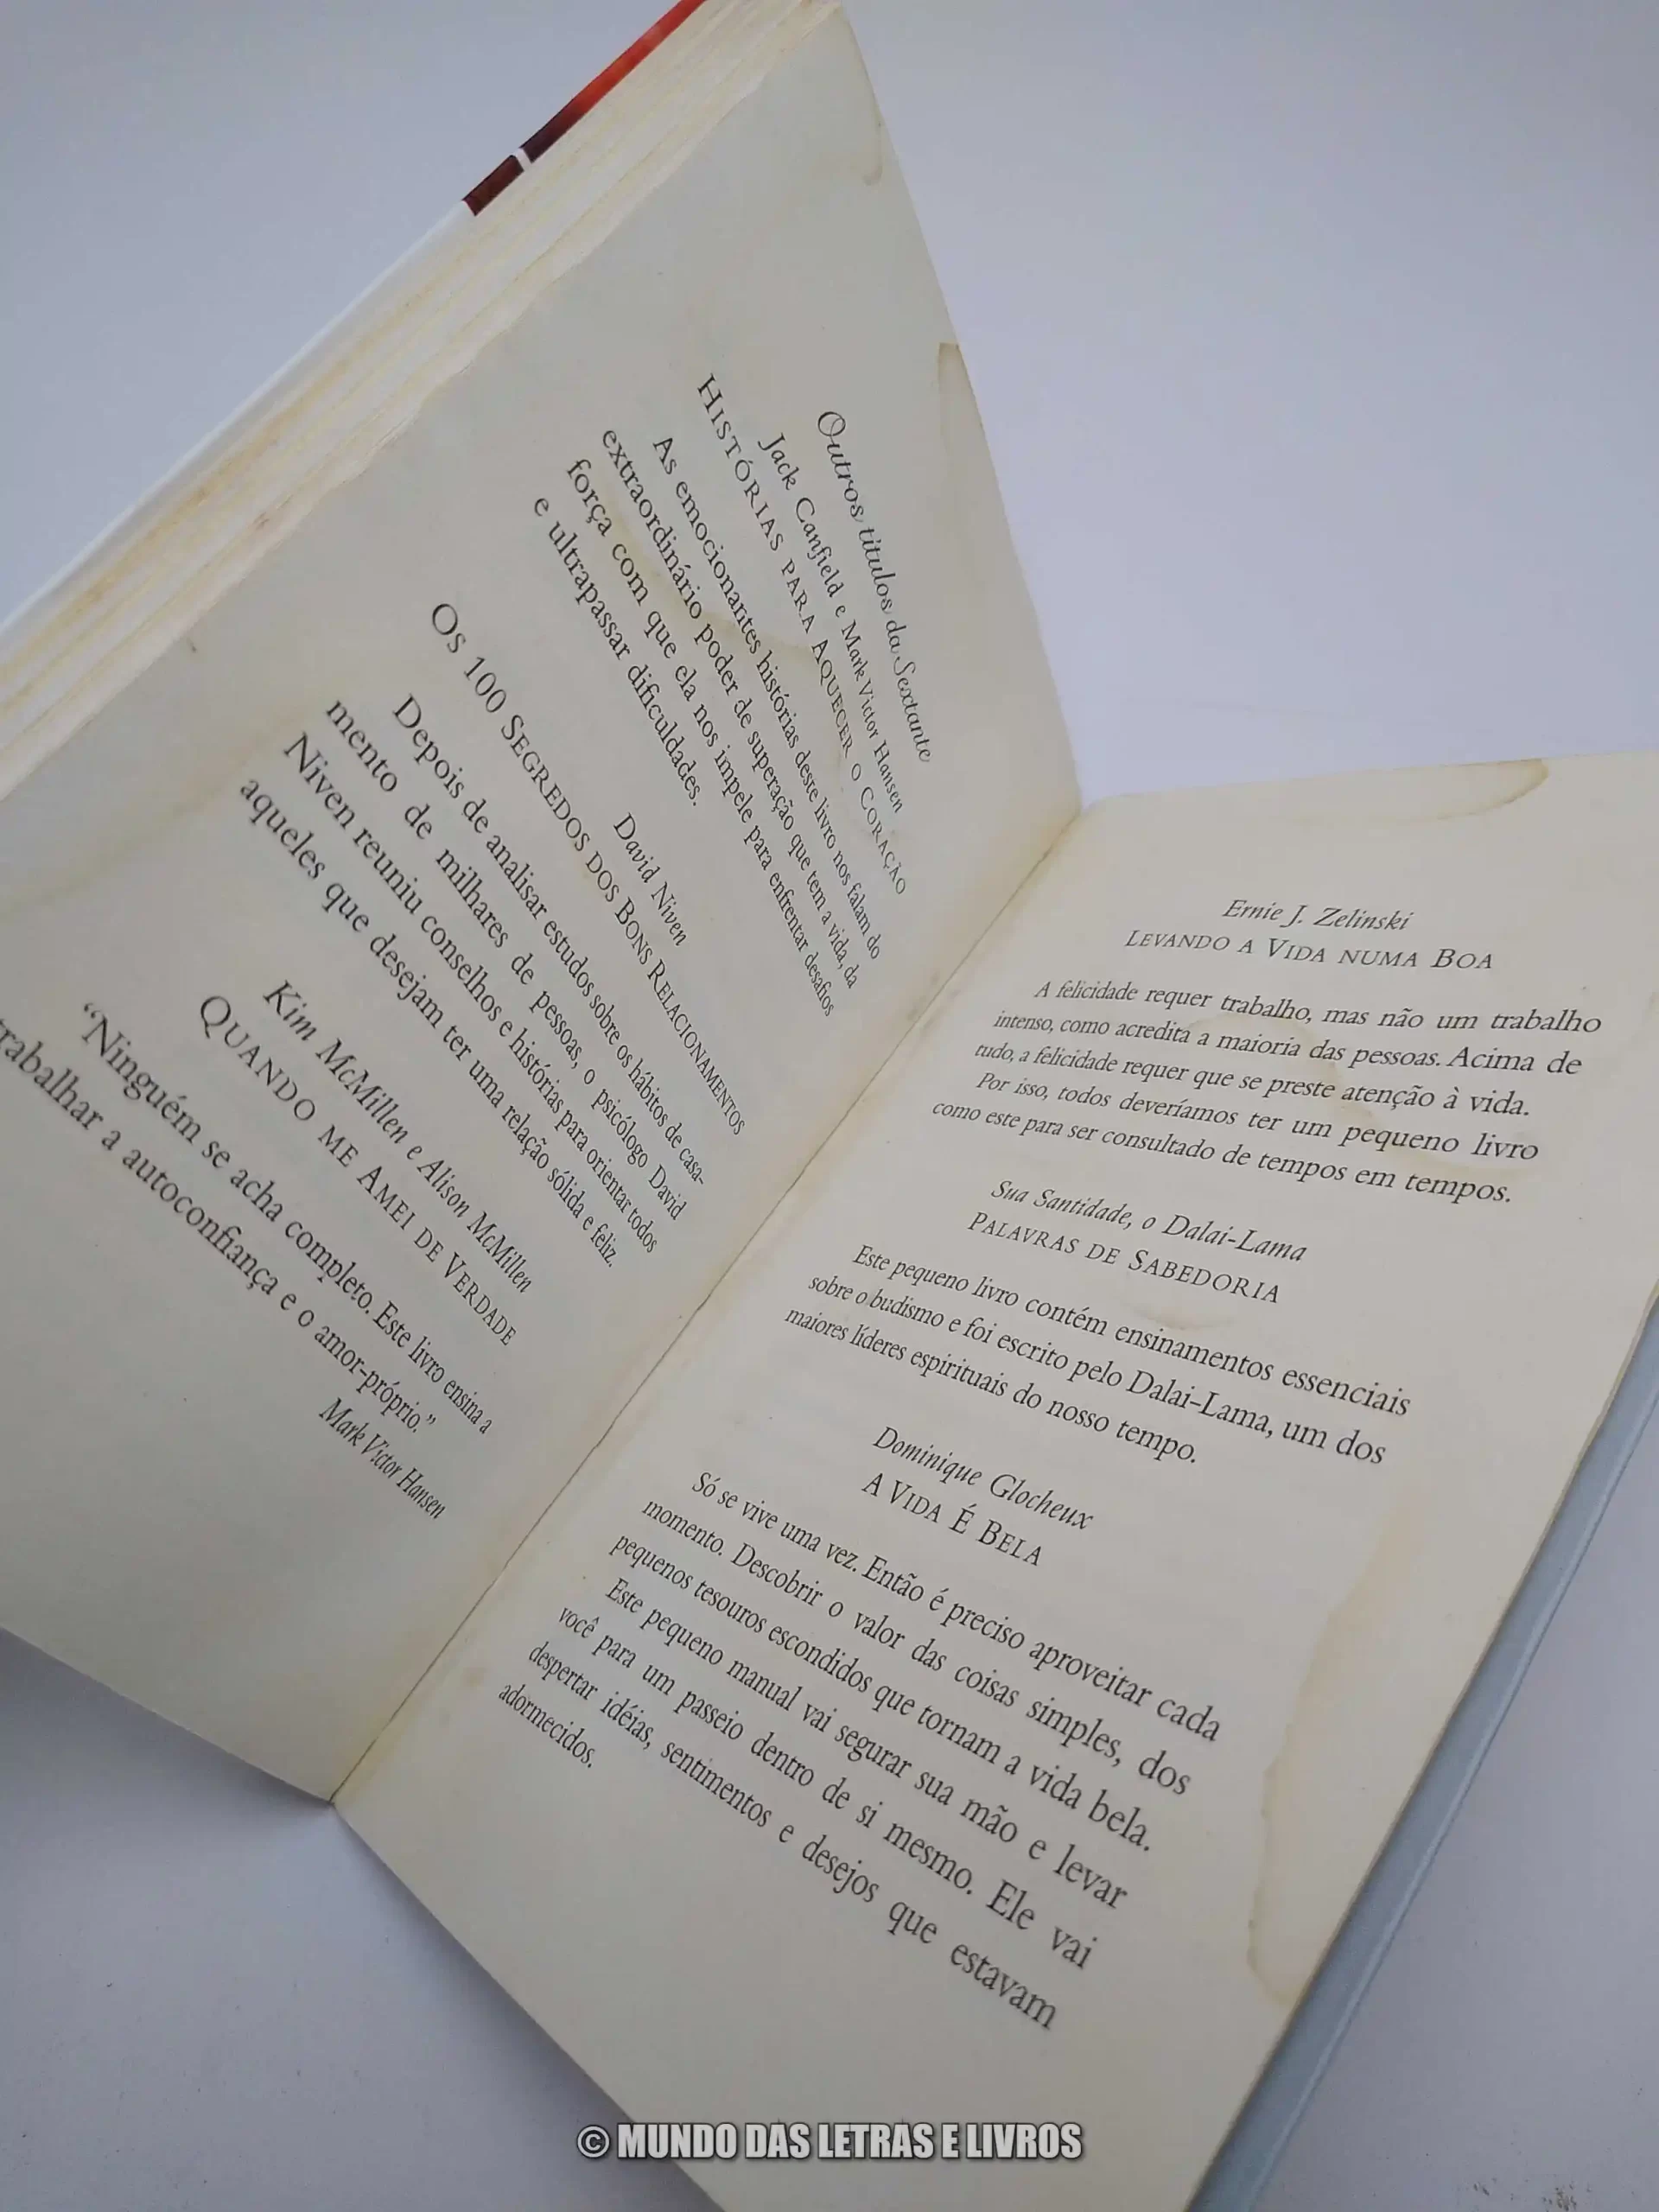 Outros títulos da Sextante
Jack Canfield e Mark Victor Hansen
HISTÓRIAS PARA AQUECER O CORAÇÃO
As emocionantes histórias deste livro nos falam do
extraordinário poder de superação que tem a vida, da
força com que ela nos impele para enfrentar desafios
e ultrapassar dificuldades.
David Niven
OS 100 SEGREDOS DOS BONS RELACIONAMENTOS
Depois de analisar estudos sobre os hábitos de casa-
mento de milhares de pessoas, o psicólogo David
Niven reuniu conselhos e histórias para orientar todos
aqueles que desejam ter uma relação sólida e feliz.
Kim McMillen e Alison McMillen
QUANDO ME AMEI DE VERDADE
“Ninguém se acha completo. Este livro ensina a
trabalhar a autoconfiança e o amor-próprio.”
Mark Victor Hansen
Ernie J. Zelinski
LEVANDO A VIDA NUMA BOA
A felicidade requer trabalho, mas não um trabalho
intenso, como acredita a maioria das pessoas. Acima de
tudo, a felicidade requer que se preste atenção à vida.
Por isso, todos deveríamos ter um pequeno livro
como este para ser consultado de tempos em tempos.
Sua Santidade, o Dalai-Lama
PALAVRAS DE SABEDORIA
Este pequeno livro contém ensinamentos essenciais
sobre o budismo e foi escrito pelo Dalai-Lama, um dos
maiores líderes espirituais do nosso tempo.
Dominique Glocheux
A VIDA É BELA
Só se vive uma vez. Então é preciso aproveitar cada
momento. Descobrir o valor das coisas simples, dos
pequenos tesouros escondidos que tornam a vida bela.
Este pequeno manual vai segurar sua mão e levar
você para um passeio dentro de si mesmo. Ele vai
despertar idéias, sentimentos e desejos que estavam
adormecidos.
© MUNDO DAS LETRAS E LIVROS